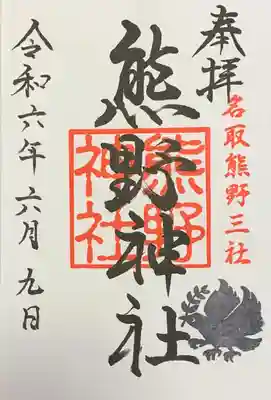 奉拝
名取熊野三社
熊野神社
熊野
神社
令和六年六月九日